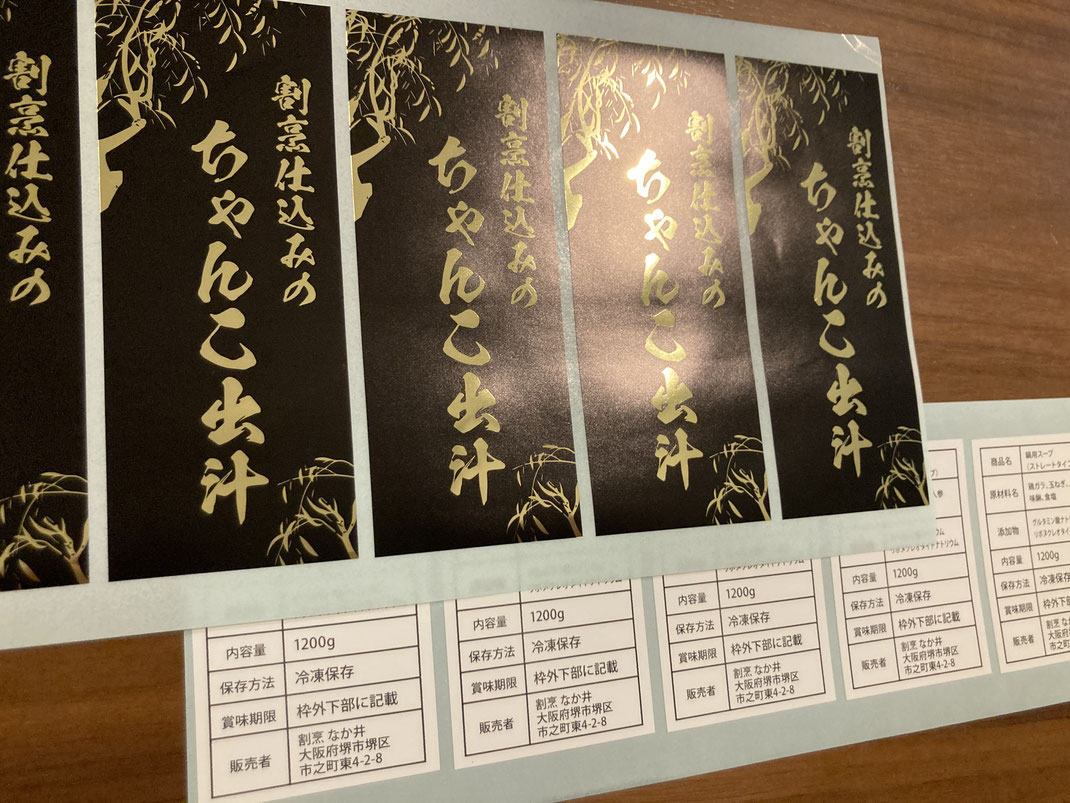 割烹仕込みの
割烹仕込みの
ちゃんこ出汁
割烹仕込みの
ちゃんこ出汁
割烹仕込みの
ちゃんこ出汁
割烹仕込みの
ちゃんこ出汁
内容量 1200g
保存方法 冷凍保存
賞味期限 枠外下部に記載
販売者 割烹 なか井
大阪府堺市堺区
市之町東4-2-8
内容量 1200g
保存方法 冷凍保存
賞味期限 枠外下部に記載
販売者 割烹 なか井
大阪府堺市堺区
市之町東4-2-8
内容量 1200g
保存方法 冷凍保存
賞味期限 枠外下部に記載
販売者 割烹 なか井
大阪府堺市堺区
市之町東4-2-8
人参
リボヌクレオタイドナトリウム
内容量 1200g
保存方法 冷凍保存
賞味期限 枠外下部に記載
販売者 割烹 なか井
大阪府堺市堺区
市之町東4-2-8
商品名 鍋用スープ
(ストレートタイプ
原材料名 鶏ガラ、玉ねぎ、
味醂、食塩
添加物 グルタミン酸ナト
リボヌクレオタイ
内容量 1200g
保存方法 冷凍保存
賞味期限 枠外下
販売者 割烹 な
大阪府
市之町